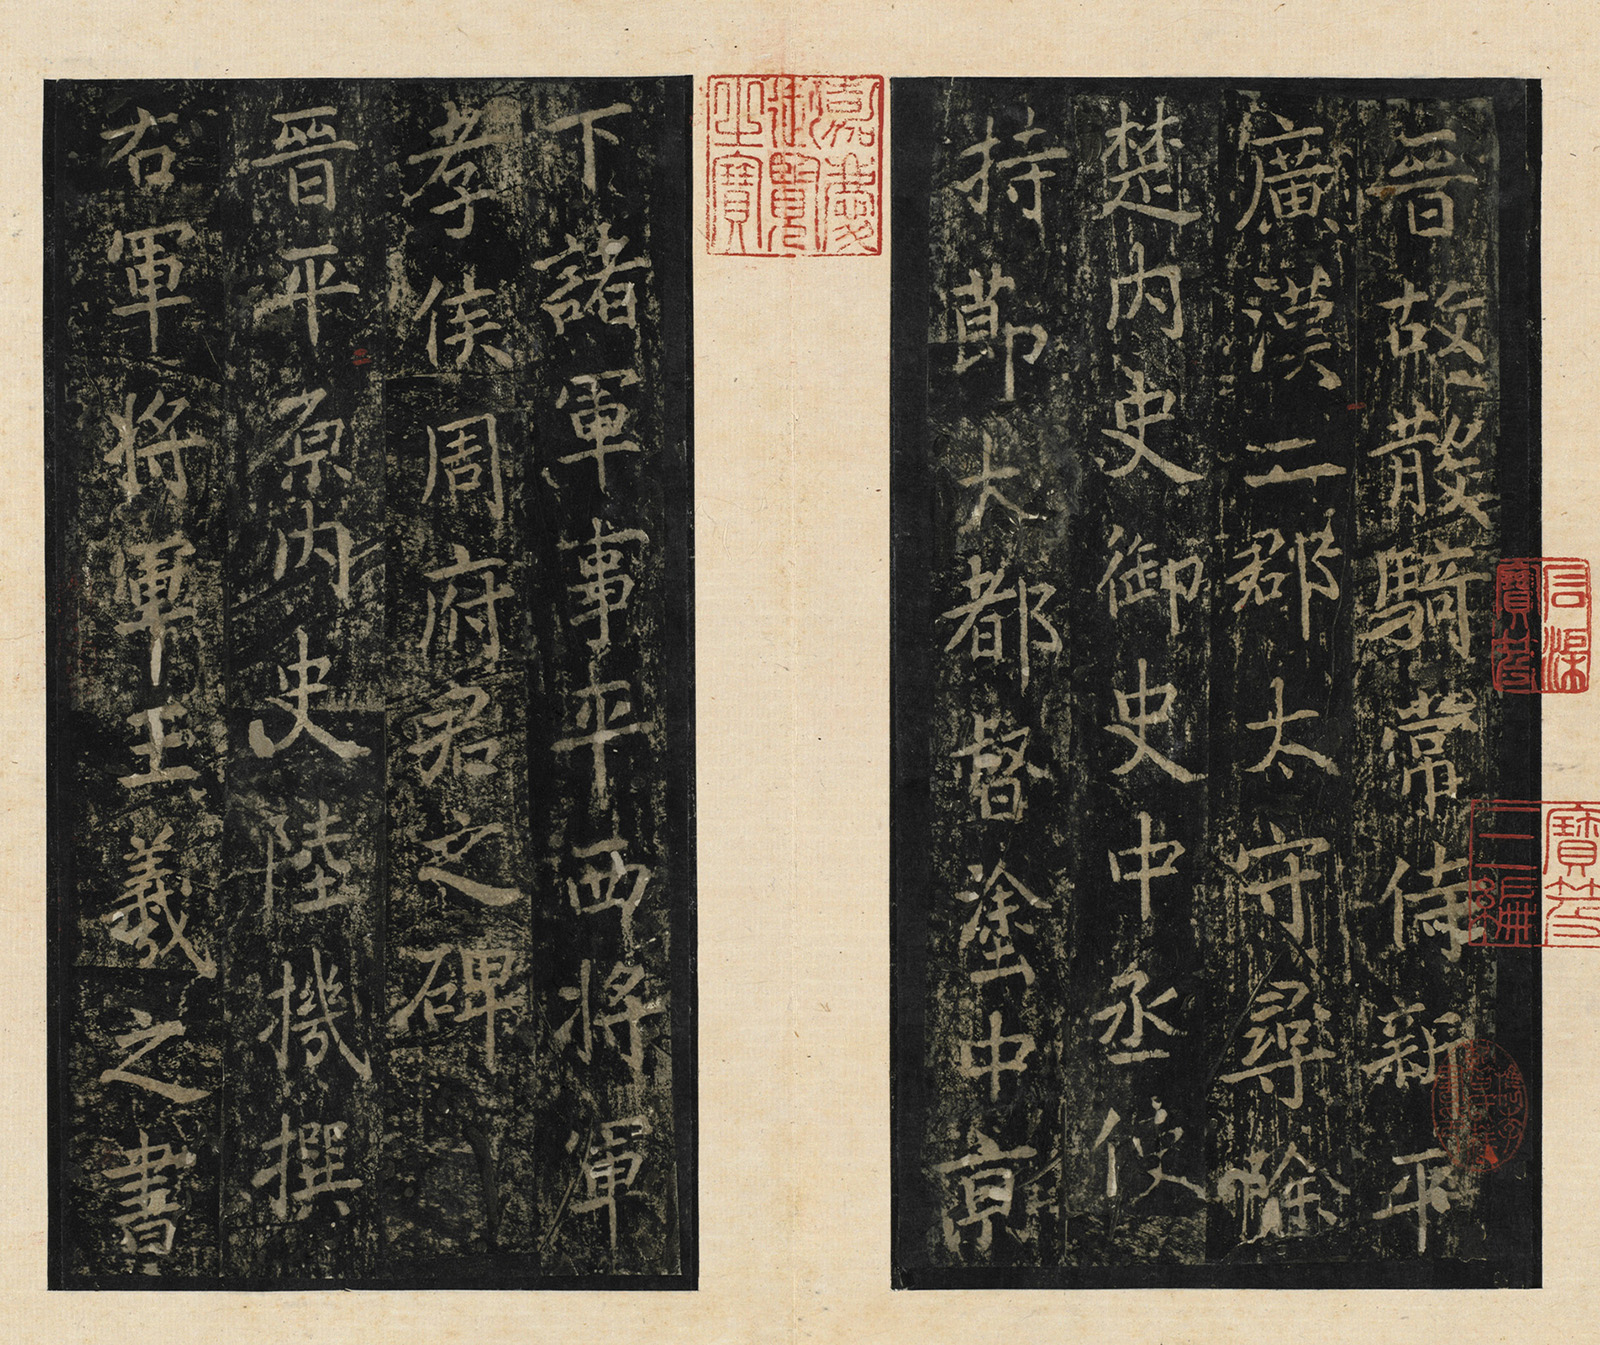 晉故散騎常侍新平
廣漢二郡太守尋除
楚內史御史中丞使
持節大都督塗中京
下諸軍事平西將軍
孝侯周府君之碑
晉平原內史陸機撰
右軍將軍王羲之書
嘉慶御覽之寶
石渠寶笈
寶笈三編